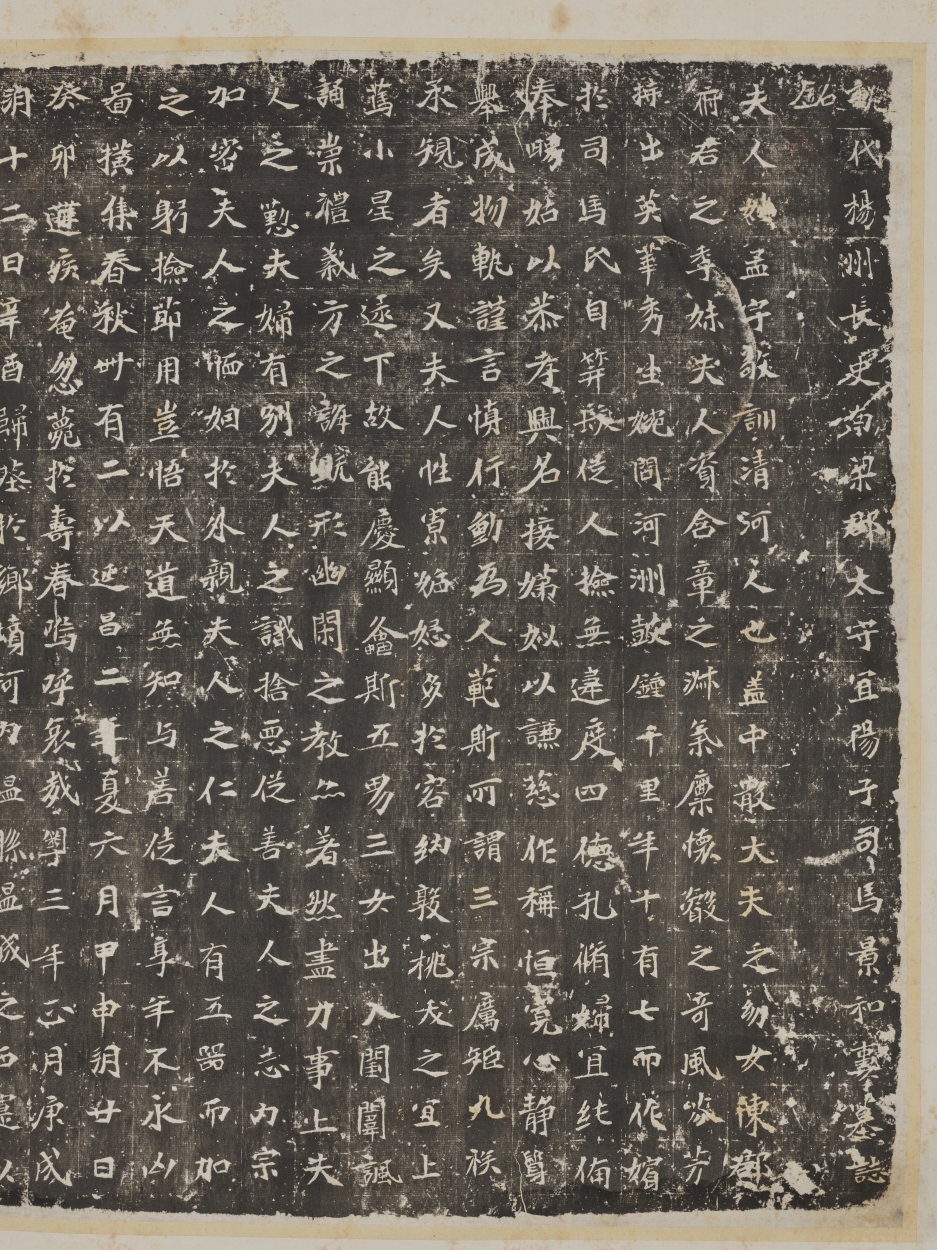 魏代楊州長史南梁郡太守宜陽子司馬景和妻墓誌
銘
夫人姓孟字敬訓清河人也蓋中散大夫之幼女陳郡
府君之季妹夫人資含章之淑氣稟懷叡之奇風芬芳
特出英華秀生婉問河洲鼓鍾千里年十有七而作嬪
於司馬氏自笄髮從人撿無違度四德孔脩婦宜純備
奉舅姑以恭孝興名接娣姒以謙慈作稱恒寬心靜質
舉成物軌謹言慎行動為人範斯所謂三宗厲矩九族
承規者矣又夫人性寡妬忌多於容納敦桃夭之宜上
蔦小星之逮下故能慶顯螽斯五男三女出入閨闈諷
誦崇禮義方之訓既形幽閑之教亦著然盡力事上夫
人之懃夫婦有別夫人之識捨惡從善夫人之志內宗
加密夫人之恤姻於外親夫人之仁夫人有五器而加
之以躬撿節用豈悟天道無知与善徒言享年不永凶
啚橫集春秋卌有二以延昌二年夏六月甲申朔廿日
癸卯遘疾奄忽薨於壽春嗚呼哀哉粵三年正月庚戌
朔十二日辛酉歸塟於鄉墳河內溫縣溫城之西